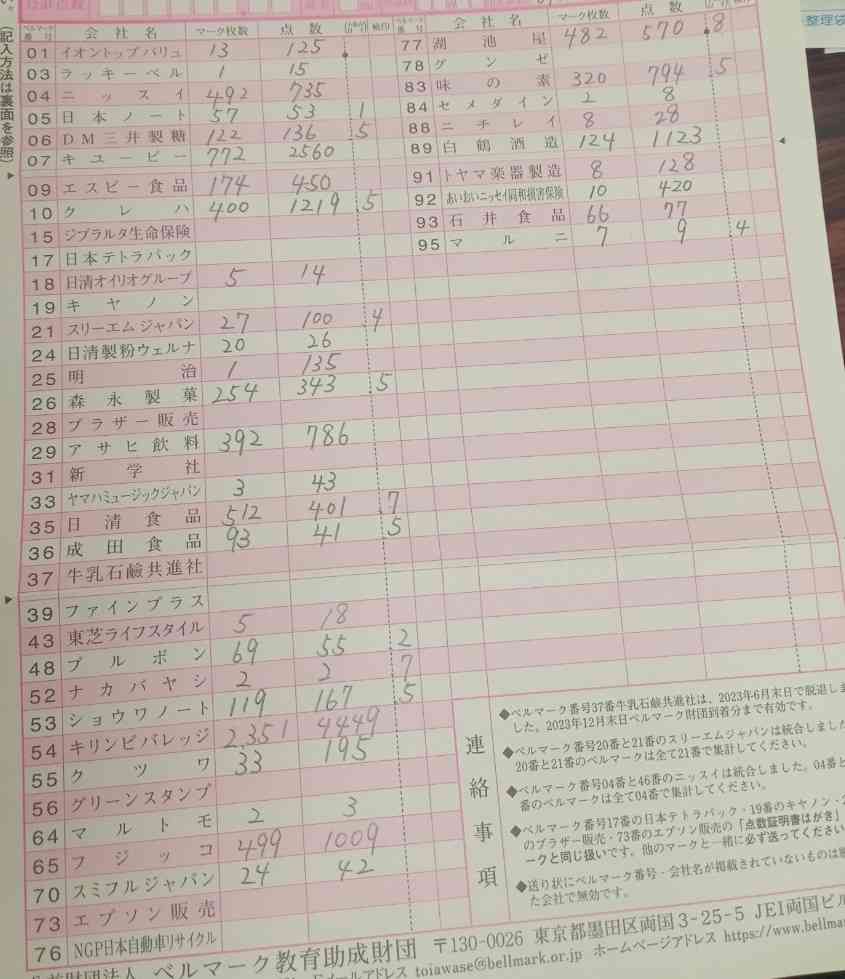 会社名 マーク枚数 点数
01 イオントップバリュ 13 125
03 ラッキーベル 1 15
04 ニッスイ 492 735
05 日本ノート 57 53 .1
06 DM三井製糖 122 136 .5
07 キユーピー 772 2560
09 エスビー食品 174 450
10 クレハ 400 1219 .5
15 ジブラルタ生命保険
17 日本テトラパック
18 日清オイリオグループ 5 14
19 キヤノン
21 スリーエムジャパン 27 100 .4
24 日清製粉ウェルナ 20 26
25 明治 1 135
26 森永製菓 254 343 .5
28 ブラザー販売
29 アサヒ飲料 392 786
31 新学社
33 ヤマハミュージックジャパン 3 43
35 日清食品 512 401 .7
36 成田食品 93 41 .5
37 牛乳石鹼共進社
39 ファインプラス
43 東芝ライフスタイル 5 18
48 ブルボン 69 55 .2
52 ナカバヤシ 2 2 .7
53 ショウワノート 119 167 .5
54 キリンビバレッジ 2,351 4449
55 クツワ 33 195
56 グリーンスタンプ
64 マルトモ 2 3
65 フジッコ 499 1009
70 スミフルジャパン 24 42
73 エプソン販売
76 NGP日本自動車リサイクル
会社名 マーク枚数 点数
77 湖池屋 482 570 .8
78 グンゼ
83 味の素 320 794 .5
84 セメダイン 2 8
88 ニチレイ 8 28
89 白鶴酒造 124 1123
91 トヤマ楽器製造 8 128
92 あいおいニッセイ同和損害保険 10 420
93 石井食品 66 77
95 マルニ 7 9 .4
連絡事項
◆ベルマーク番号37番牛乳石鹼共進社は、2023年6月末日で脱退しま
した。2023年12月末日ベルマーク財団到着分まで有効です。
◆ベルマーク番号20番と21番のスリーエムジャパンは統合しました
20番と21番のベルマークは全て21番で集計してください。
◆ベルマーク番号04番と46番のニッスイは統合しました。04番と
番のベルマークは全て04番で集計してください。
◆ベルマーク番号17番の日本テトラパック・19番のキヤノン・2
のブラザー販売・73番のエプソン販売の「点数証明書はがき」
ークと同じ扱いです。他のマークと一緒に必ず送ってください
◆送り状にベルマーク番号・会社名が掲載されていないものは
た会社で無効です。
ベルマーク教育助成財団 〒130-0026 東京都墨田区両国3-25-5 JEI両国ビル
メールアドレス toiawase@bellmark.or.jp ホームページアドレス https://www.bellmar
(記入方法は裏面を参照)
整理袋